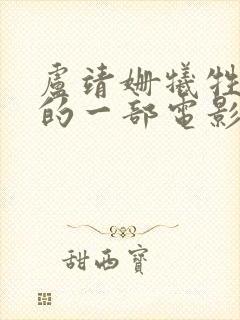 盧靖姍犧牲
的一部電影
甜西寶